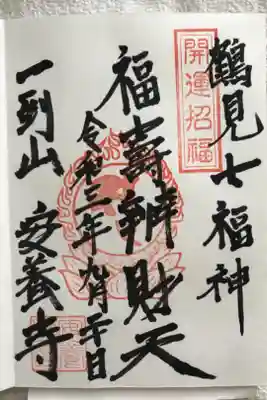 開運招福
鶴見七福神
福壽辨財天
令和三年九月二十日
一到山 安養寺